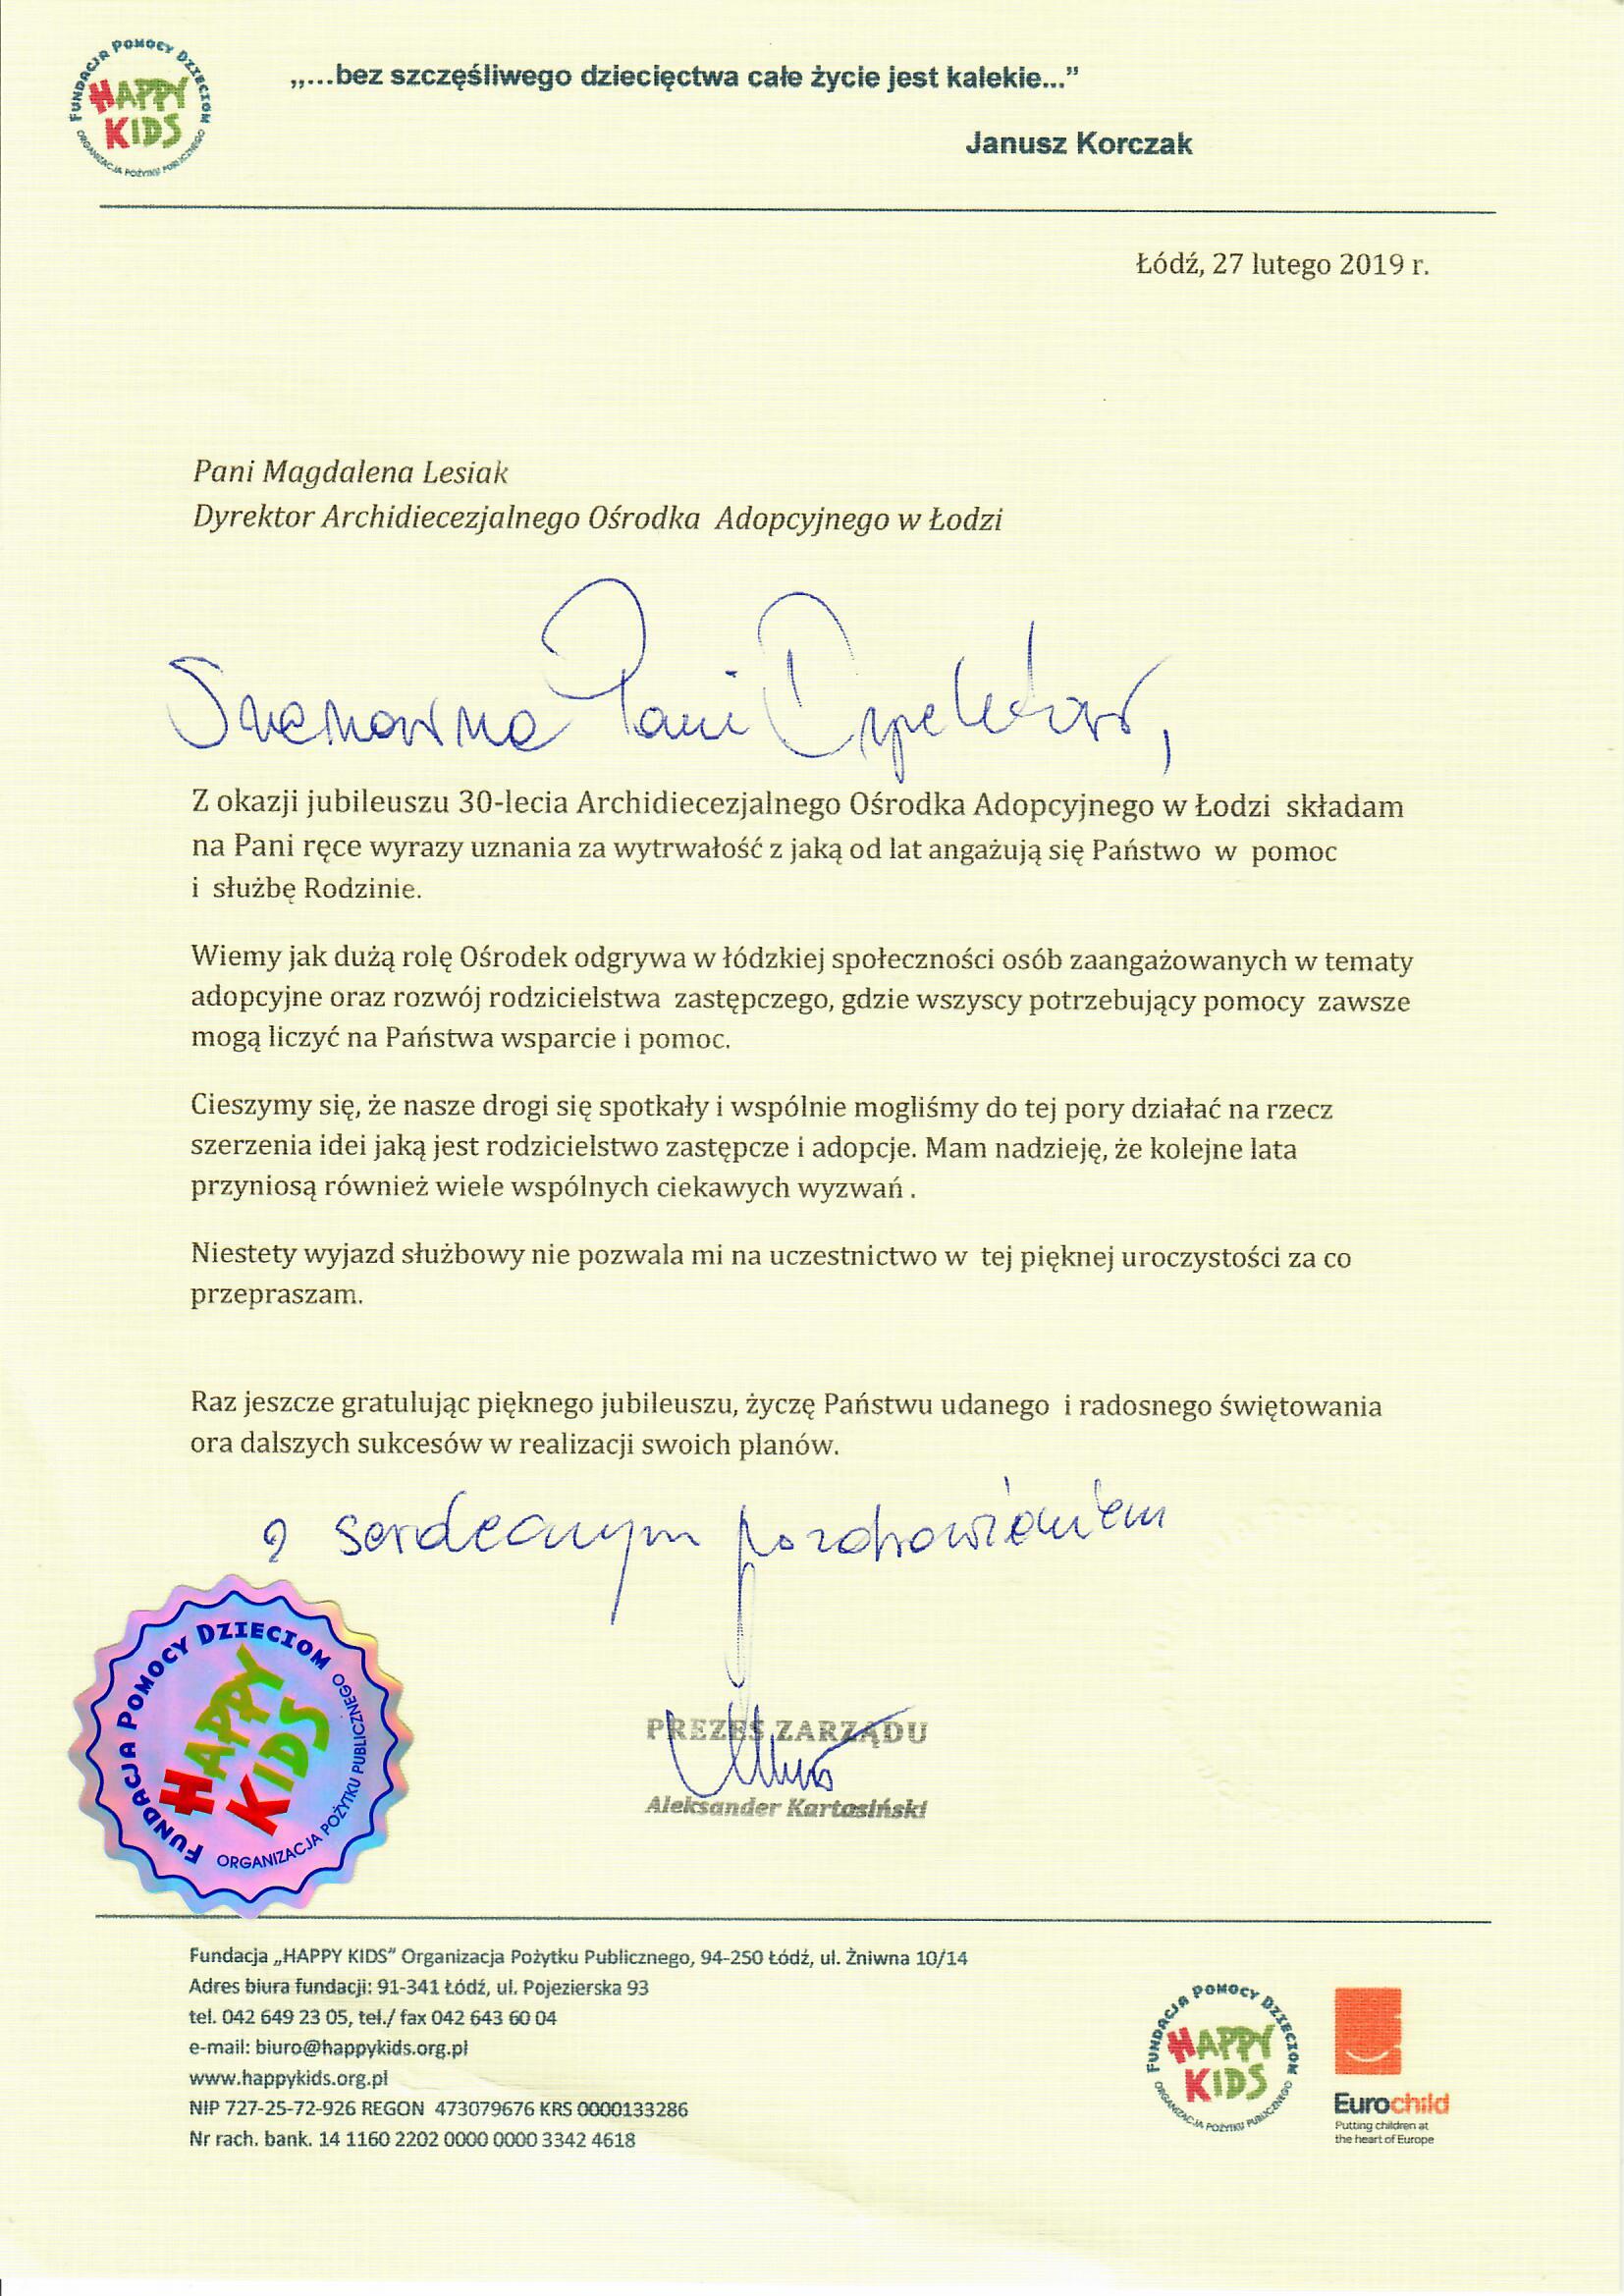 FUNDACJA POMOCY DZIECIOM
HAPPY
KIDS
ORGANIZACJA POŻYTKU PUBLICZNEGO
„...bez szczęśliwego dziecięctwa całe życie jest kalekie...”
Janusz Korczak
Łódź, 27 lutego 2019 r.
Pani Magdalena Lesiak
Dyrektor Archidiecezjalnego Ośrodka Adopcyjnego w Łodzi
Szanowna Pani Dyrektor,
Z okazji jubileuszu 30-lecia Archidiecezjalnego Ośrodka Adopcyjnego w Łodzi składam
na Pani ręce wyrazy uznania za wytrwałość z jaką od lat angażują się Państwo w pomoc
i służbę Rodzinie.
Wiemy jak dużą rolę Ośrodek odgrywa w łódzkiej społeczności osób zaangażowanych w tematy
adopcyjne oraz rozwój rodzicielstwa zastępczego, gdzie wszyscy potrzebujący pomocy zawsze
mogą liczyć na Państwa wsparcie i pomoc.
Cieszymy się, że nasze drogi się spotkały i wspólnie mogliśmy do tej pory działać na rzecz
szerzenia idei jaką jest rodzicielstwo zastępcze i adopcje. Mam nadzieję, że kolejne lata
przyniosą również wiele wspólnych ciekawych wyzwań .
Niestety wyjazd służbowy nie pozwala mi na uczestnictwo w tej pięknej uroczystości za co
przepraszam.
Raz jeszcze gratulując pięknego jubileuszu, życzę Państwu udanego i radosnego świętowania
ora dalszych sukcesów w realizacji swoich planów.
z serdecznym pozdrowieniem
FUNDACJA POMOCY DZIECIOM
HAPPY
KIDS
ORGANIZACJA POŻYTKU PUBLICZNEGO
PREZES ZARZĄDU
Aleksander Kartasiński
Fundacja „HAPPY KIDS” Organizacja Pożytku Publicznego, 94-250 Łódź, ul. Żniwna 10/14
Adres biura fundacji: 91-341 Łódź, ul. Pojezierska 93
tel. 042 649 23 05, tel./ fax 042 643 60 04
e-mail: biuro@happykids.org.pl
www.happykids.org.pl
NIP 727-25-72-926 REGON 473079676 KRS 0000133286
Nr rach. bank. 14 1160 2202 0000 0000 3342 4618
FUNDACJA POMOCY DZIECIOM
HAPPY
KIDS
ORGANIZACJA POŻYTKU PUBLICZNEGO
Eurochild
Putting children at
the heart of Europe